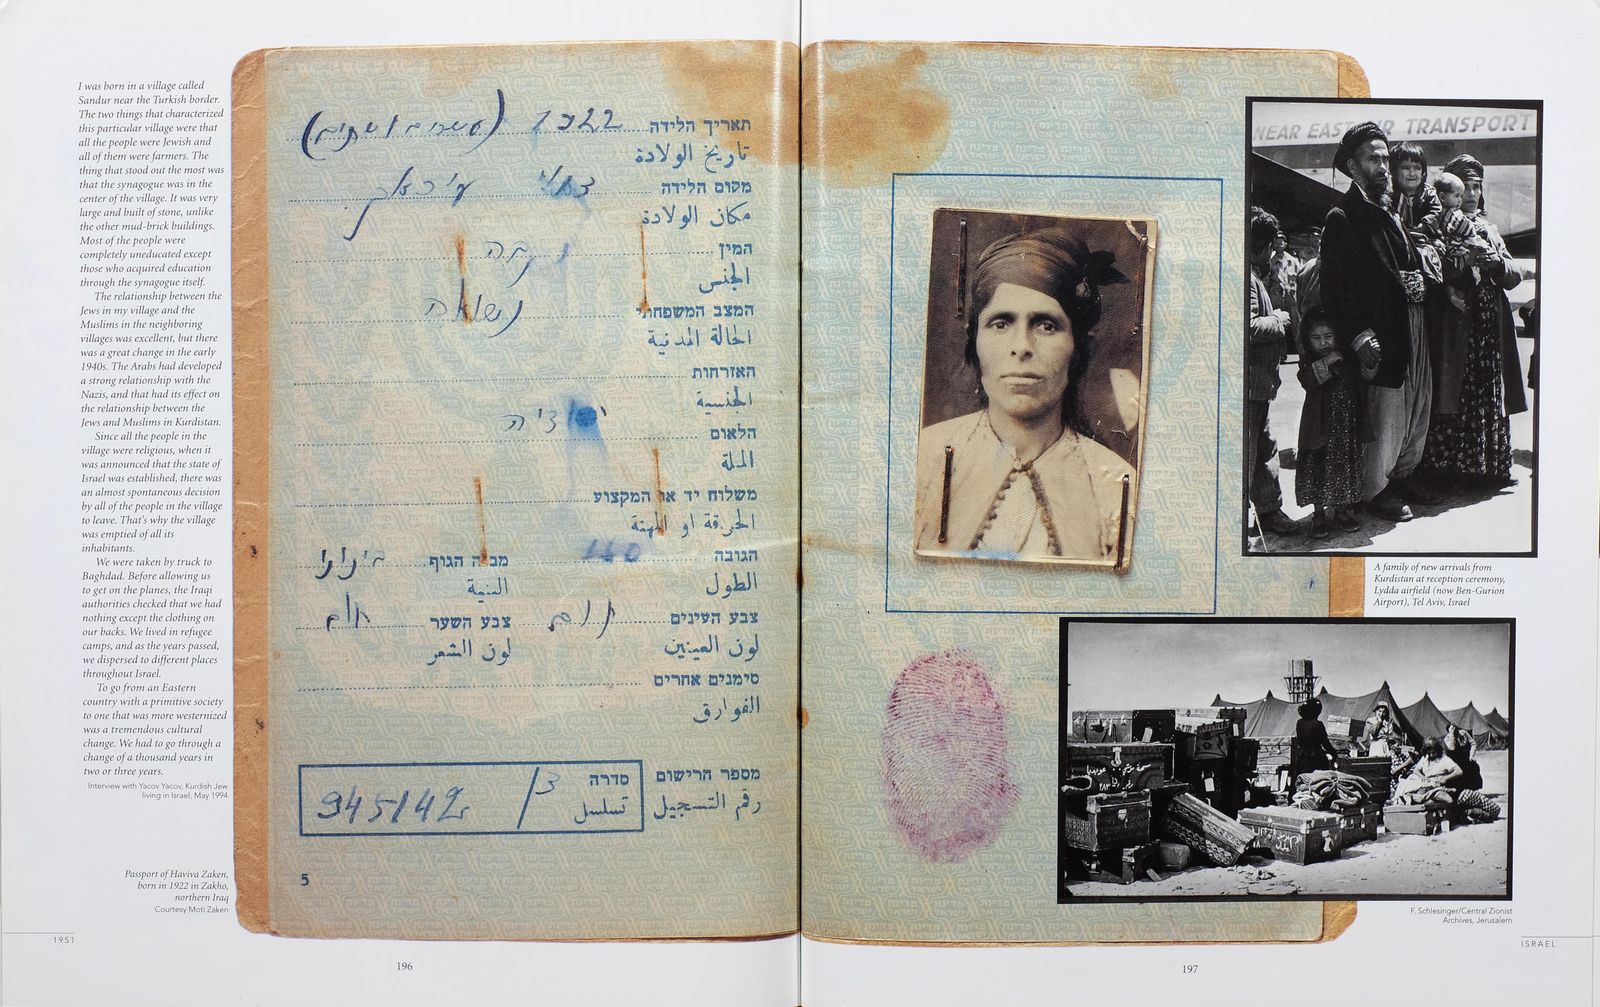 I was born in a village called
Sandur near the Turkish border.
The two things that characterized
this particular village were that
all the people were Jewish and
all of them were farmers. The
thing that stood out the most was
that the synagogue was in the
center of the village. It was very
large and built of stone, unlike
the other mud-brick buildings.
Most of the people were
completely uneducated except
those who acquired education
through the synagogue itself.
The relationship between the
Jews in my village and the
Muslims in the neighboring
villages was excellent, but there
was a great change in the early
1940s. The Arabs had developed
a strong relationship with the
Nazis, and that had its effect on
the relationship between the
Jews and Muslims in Kurdistan.
Since all the people in the
village were religious, when it
was announced that the state of
Israel was established, there was
an almost spontaneous decision
by all of the people in the village
to leave. That's why the village
was emptied of all its
inhabitants.
We were taken by truck to
Baghdad. Before allowing us
to get on the planes, the Iraqi
authorities checked that we had
nothing except the clothing on
our backs. We lived in refugee
camps, and as the years passed,
we dispersed to different places
throughout Israel.
To go from an Eastern
country with a primitive society
to one that was more westernized
was a tremendous cultural
change. We had to go through a
change of a thousand years in
two or three years.
Interview with Yacov Yacov, Kurdish Jew
living in Israel, May 1994
Passport of Haviva Zaken,
born in 1922 in Zakho,
northern Iraq
Courtesy Moti Zaken
1951
196
תאריך הלידה 1922 (עשרים ושתים)
تاريخ الولادة
מקום הלידה עיראק
مكان الولادة
המין נקבה
الجنس
המצב המשפחתי נשואה
الحالة المدنية
האזרחות
الجنسية
הלאום יהודיה
الملة
משלוח יד או המקצוע
الحرفة او المهنة
הגובה 160 מבנה הגוף בינוני
الطول البنية
צבע העינים חום צבע השער חום
لون العينين لون الشعر
סימנים אחרים
الفوارق
מספר הרישום סדרה
رقم التسجيل تسلسل
945142
5
NEAR EAST AIR TRANSPORT
A family of new arrivals from
Kurdistan at reception ceremony,
Lydda airfield (now Ben-Gurion
Airport), Tel Aviv, Israel
F. Schlesinger/Central Zionist
Archives, Jerusalem
ISRAEL
197